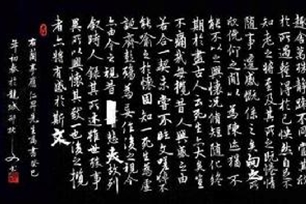 遇暫得於己快然自足不
知老之將至及其所之既倦情
隨事遷感慨係之矣向之所
欣俛仰之間以為陳迹猶不
能不以之興懷況脩短隨化終
期於盡古人云死生亦大矣豈
不痛哉每攬昔人興感之由
若合一契未嘗不臨文嗟悼不
能喻之於懷固知一死生為虛
誕齊彭殤為妄作後之視今
亦由今之視昔悲夫故列
敘時人錄其所述雖世殊事
異所以興懷其致一也後之攬
者亦將有感於斯文